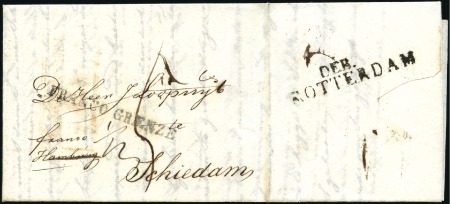 DEB.
ROTTERDAM
De Heer
FRANCO GRENZE
te
franco
Hamburg
Schiedam